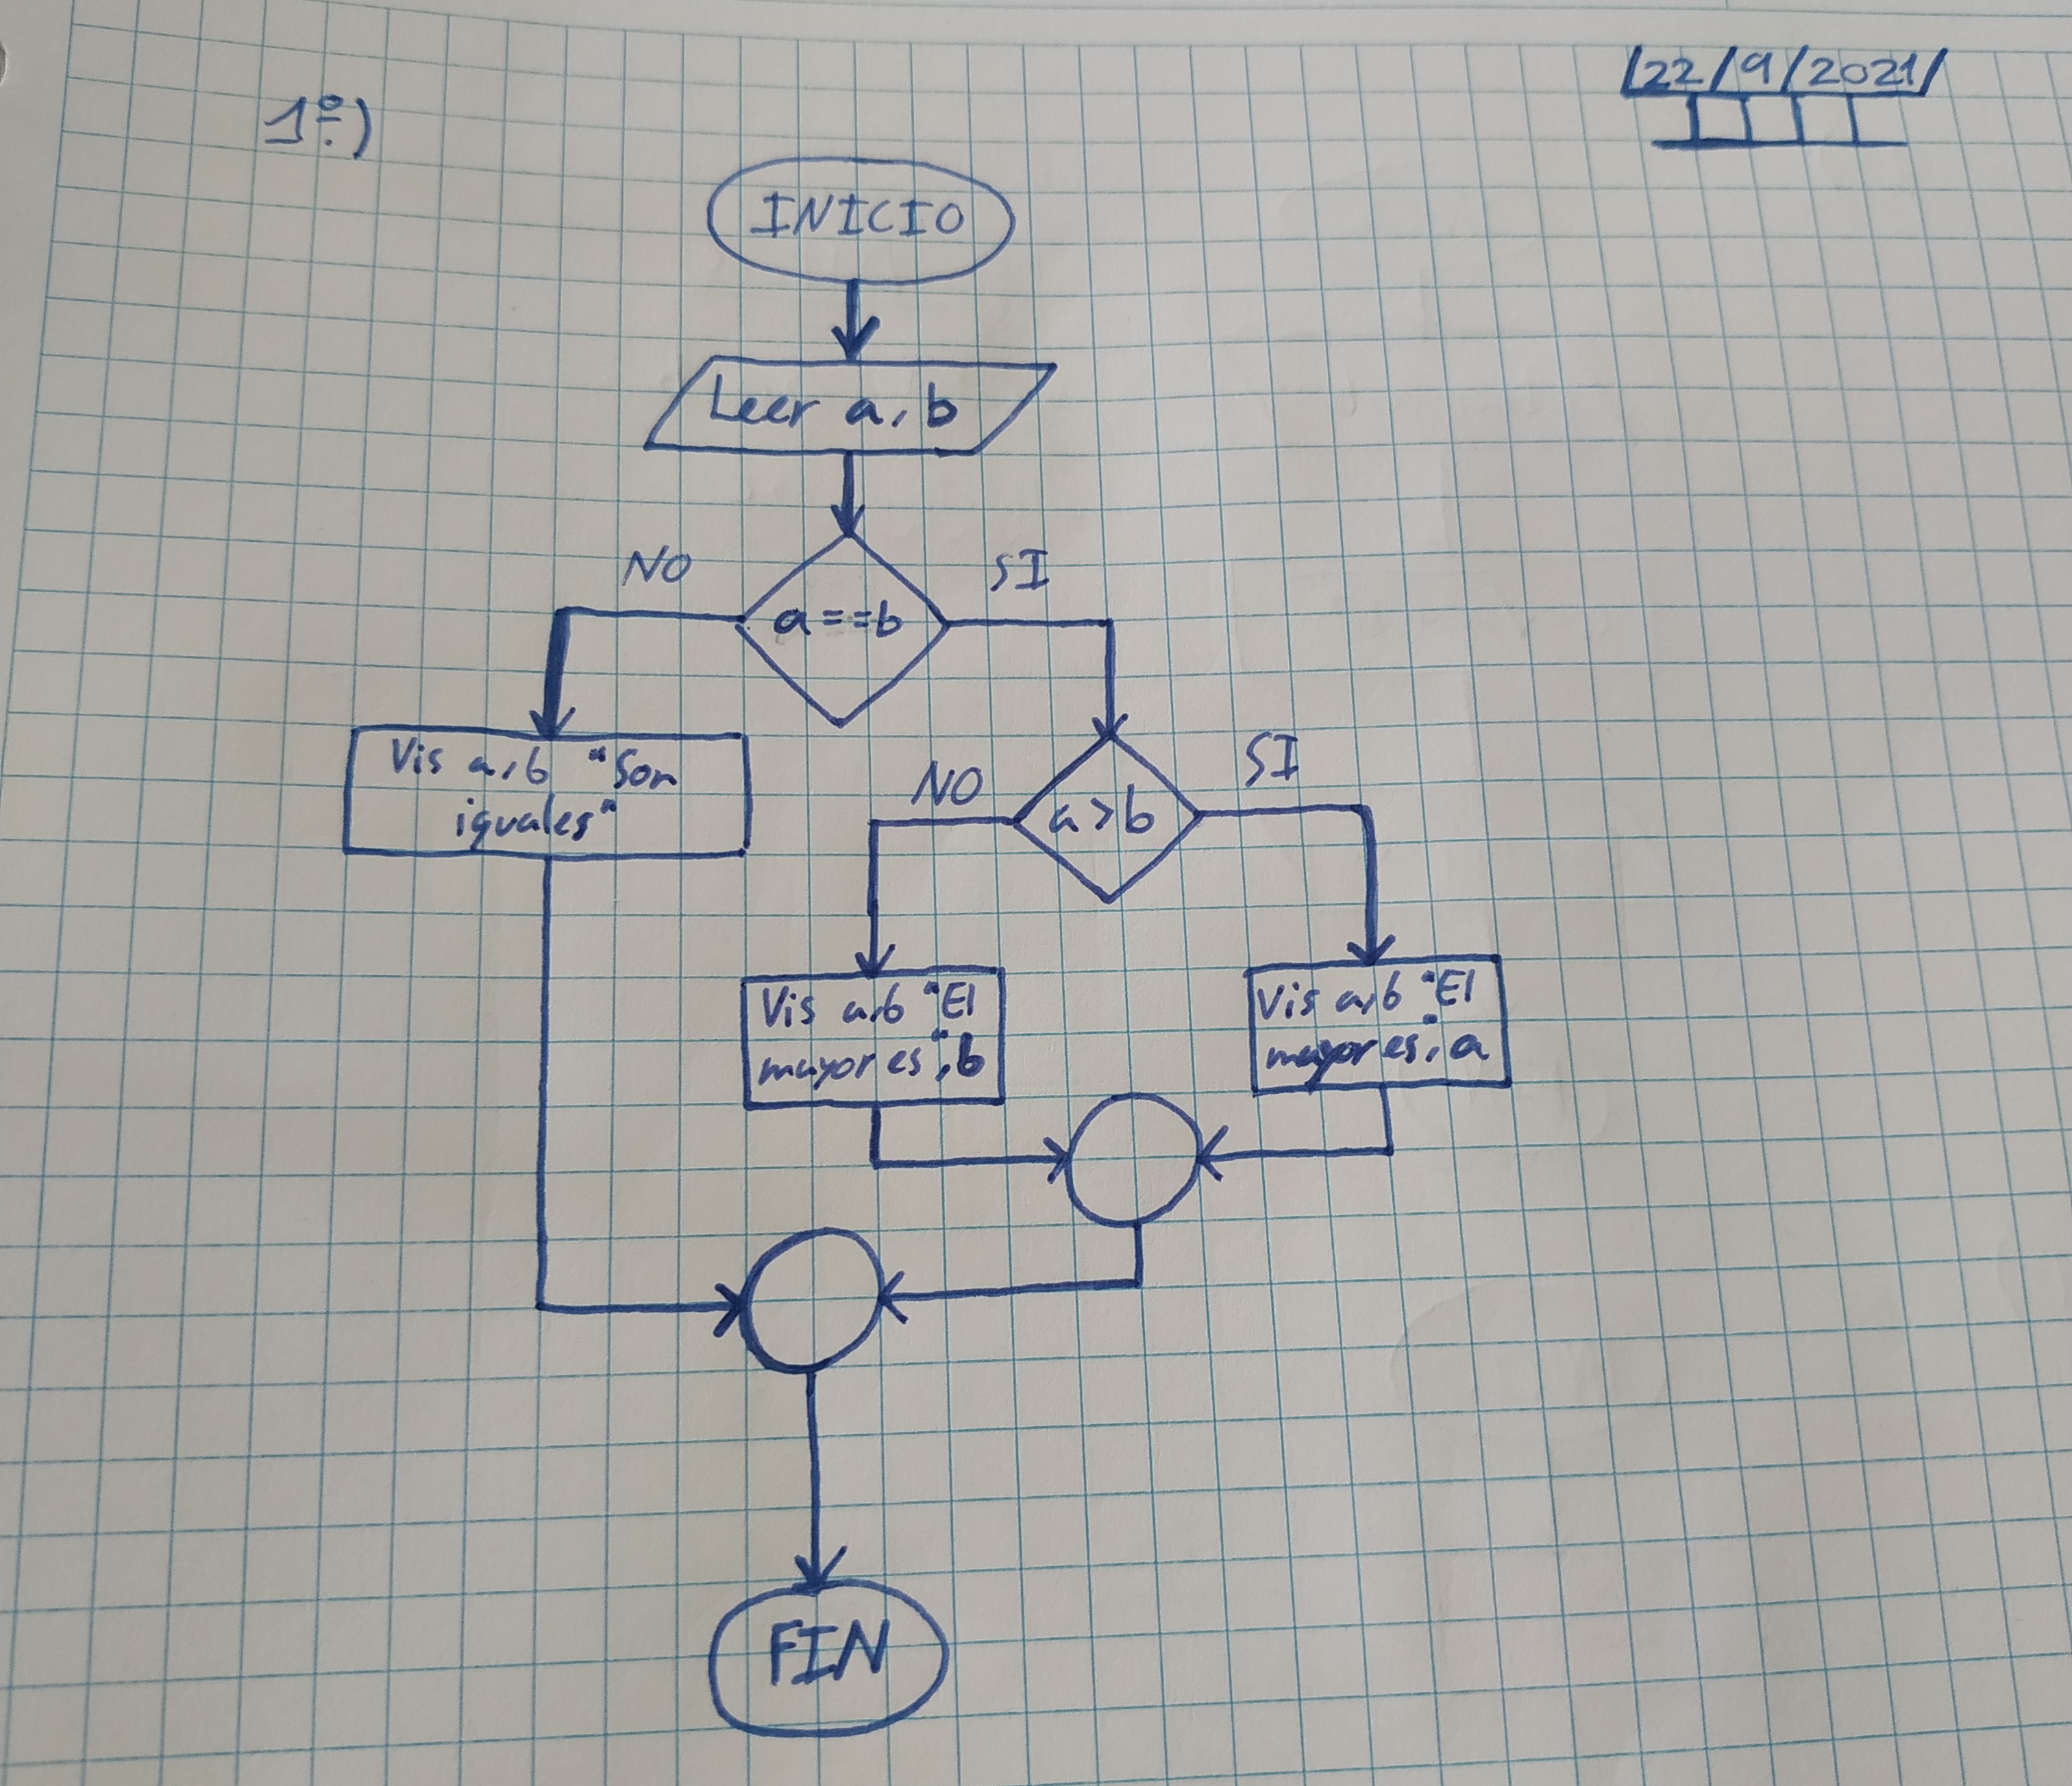 /22/9/2021/
1º)
INICIO
Leer a, b
NO
SI
a==b
Vis a,b "Son
iguales"
NO
SI
a>b
Vis a,b "El
mayor es", b
Vis a,b "El
mayor es", a
FIN